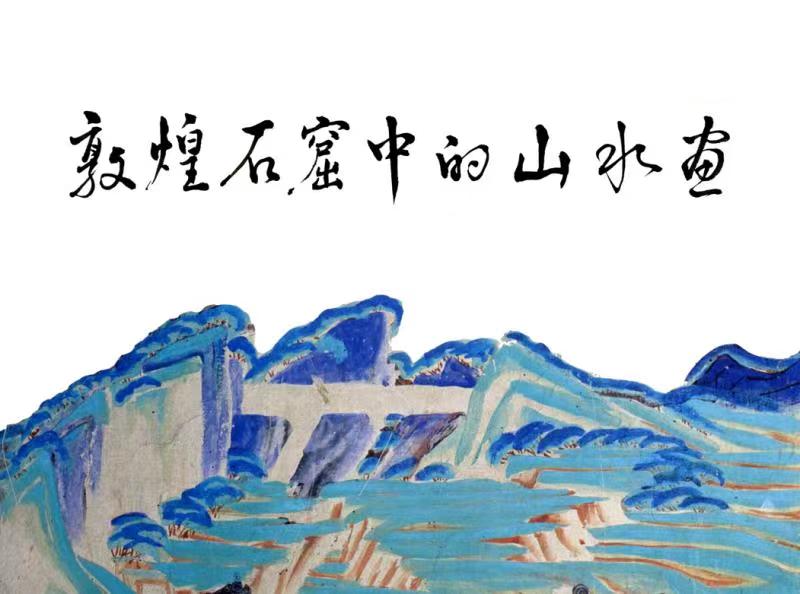 敦煌石窟中的山水画